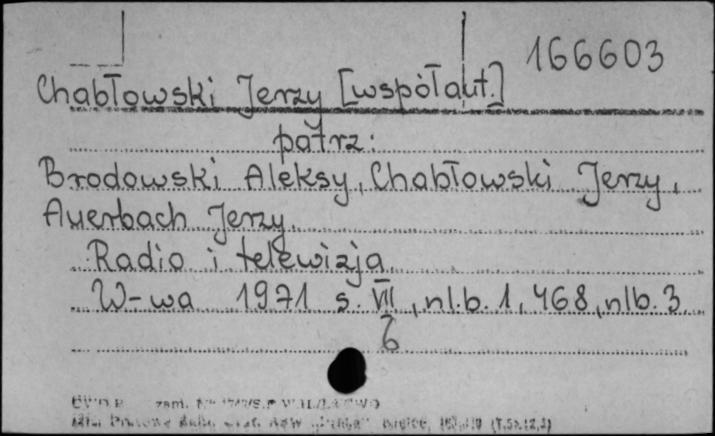 166603
Chabłowski Jerzy [współaut.]
patrz:
Brodowski Aleksy, Chabłowski Jerzy,
Auerbach Jerzy
Radio i telewizja
W-wa 1971 s. VII, nl.b. 1, 468, nlb. 3
6
zam.